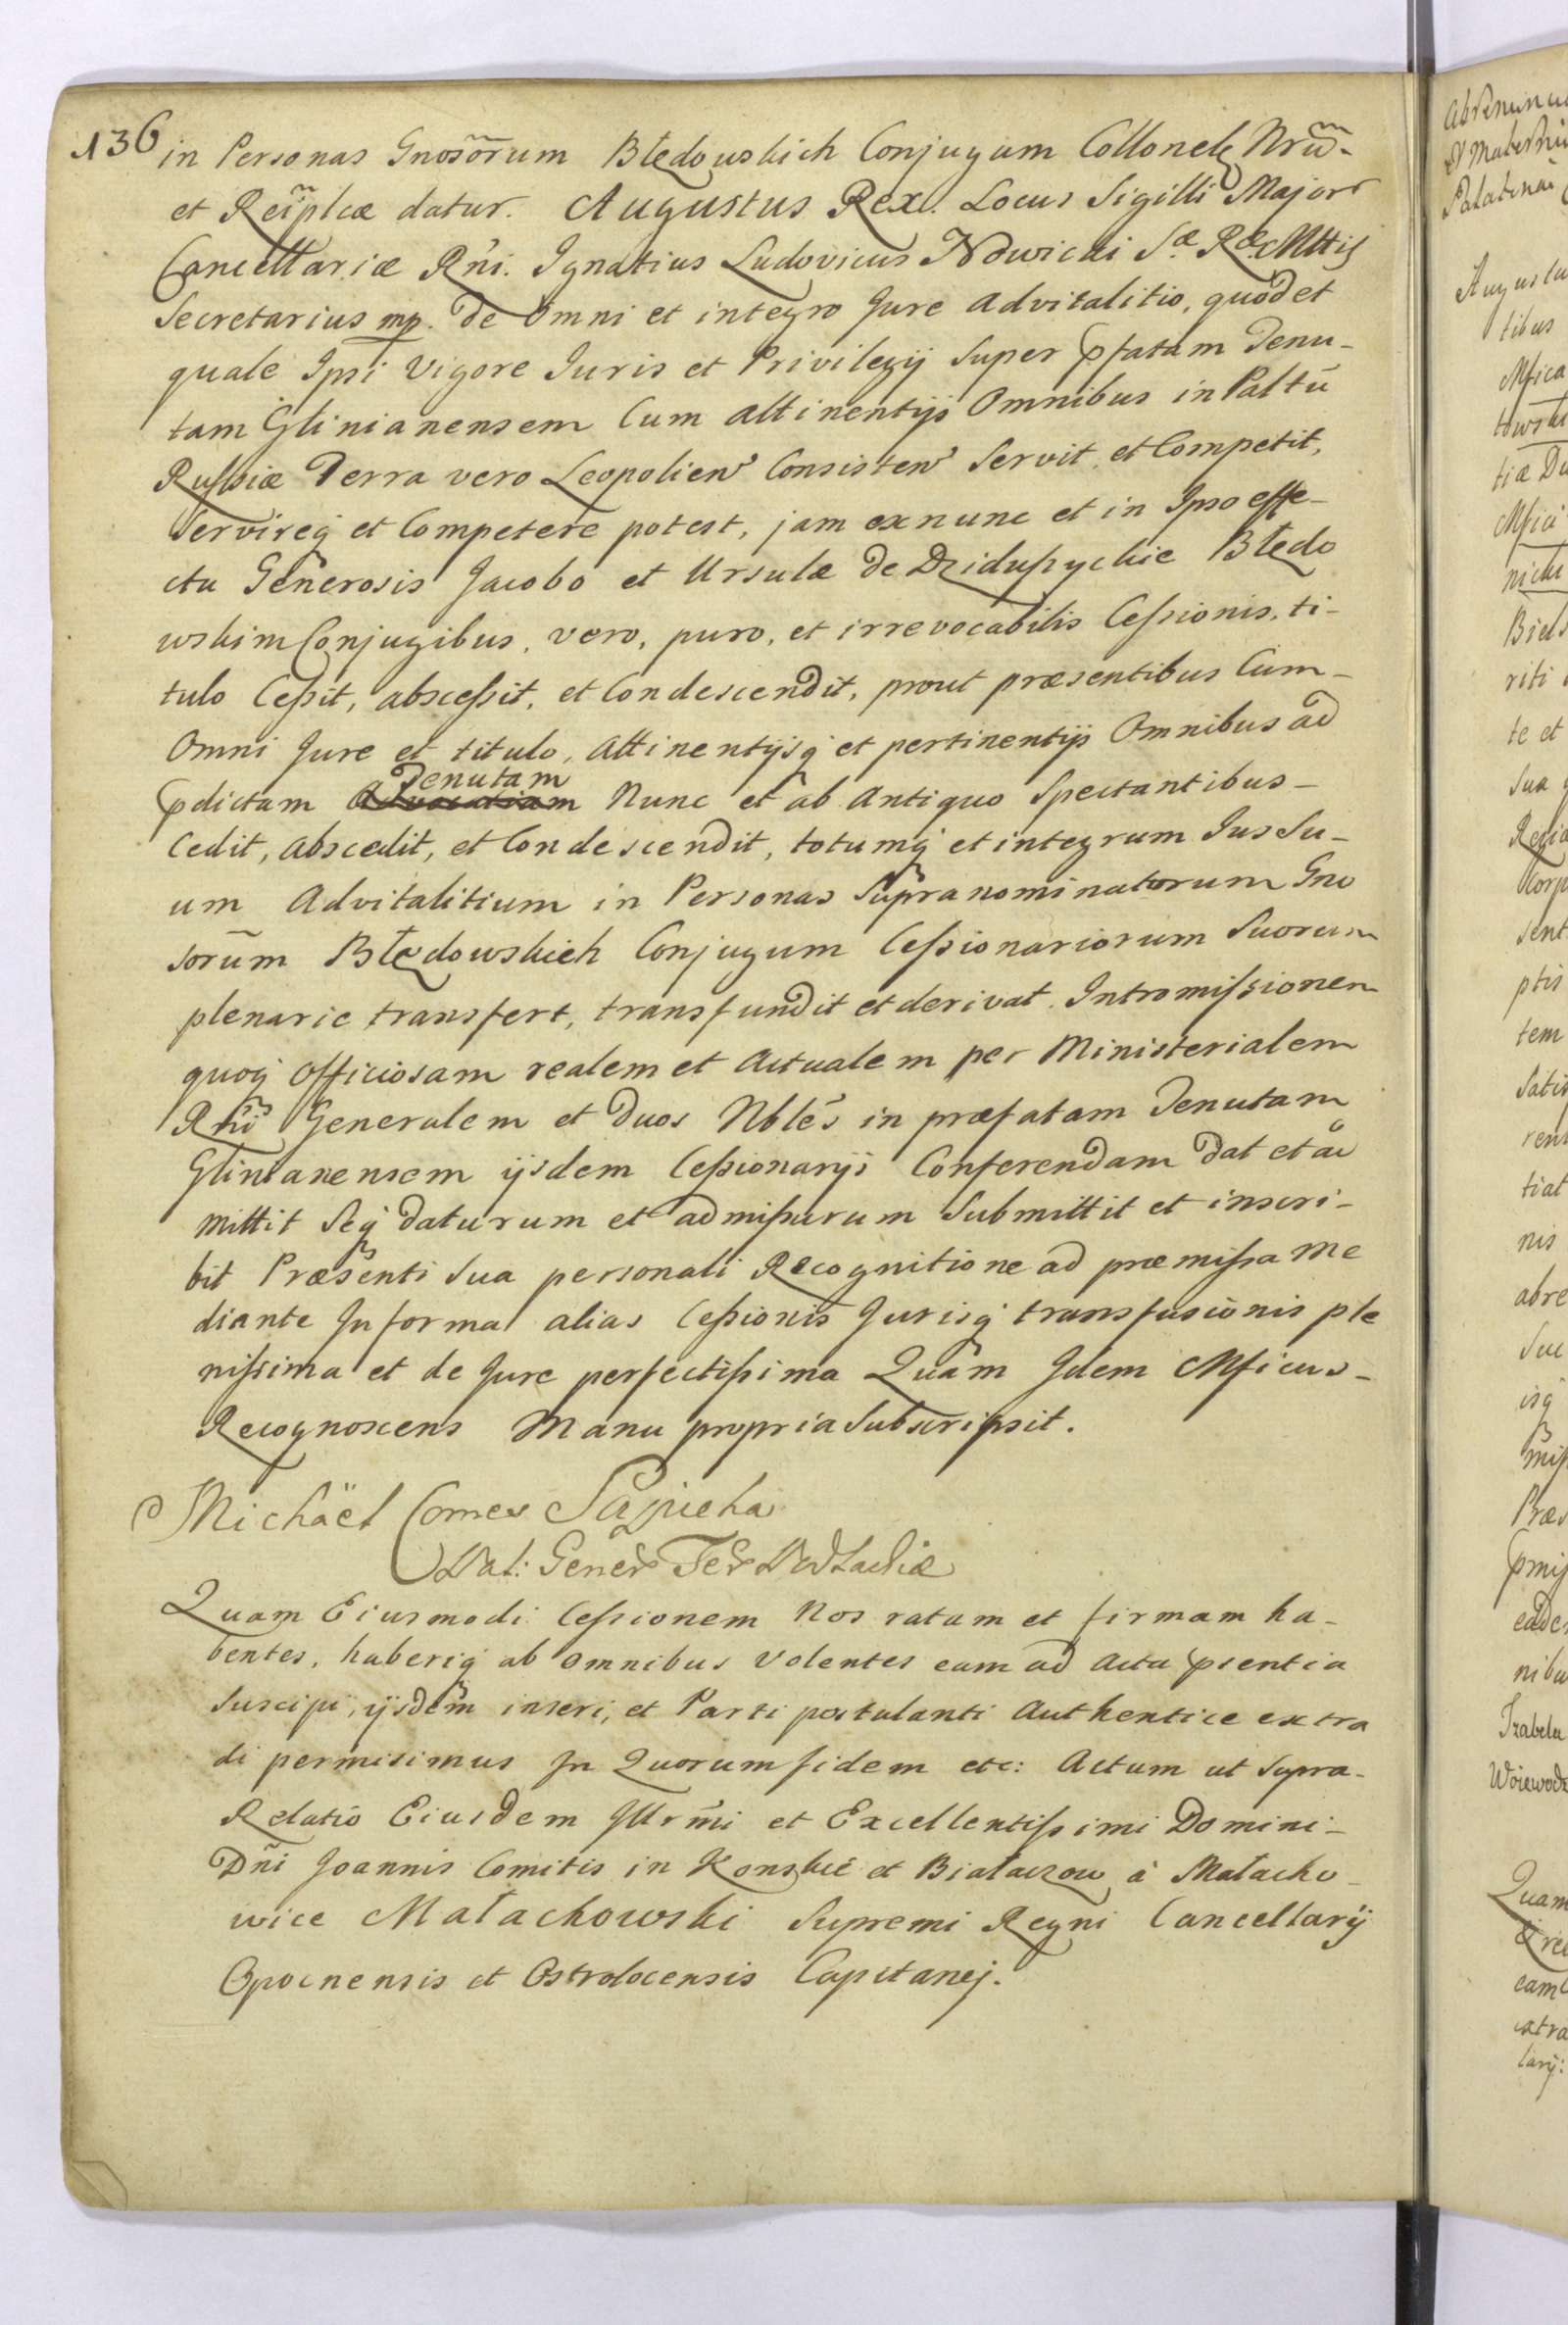 136
in Personas Gnosorum Błędowskich Conjugum Collonelg Nrũ-
et Reiplcæ datur. Augustus Rex. Locus Sigilli Majors
Cancellariæ Rńi. Ignatius Ludovicus Nowicki Sæ Ræ Mttis
Secretarius mp. de Omni et integro Jure advitalitio, quod et
quale Ipsi Vigore Iuris et Privilegij Super pfatam Tenu-
tam Glinianensem Cum attinentijs Omnibus in Paltũ
Russiæ Terra vero Leopolien Consisten Servit, et Competit,
Servireq et Competere potest, jam ex nunc et in Ipso effe-
ctu Generosis Jacobo et Ursulæ de Dzidussyckie Błędo
wskim Conjugibus, vero, puro, et irrevocabilis Cessionis, ti-
tulo Cessit, abscessit, et Condescendit, prout præsentibus Cum-
Omni Jure et titulo, attinentijsq et pertinentijs Omnibus ad
Tenutam
pdictam Advocatiam Nunc et ab Antiquo Spectantibus-
Cedit, abscedit, et Condescendit, totumq et integrum Jus Su-
um Advitalitium in Personas Supranominatorum Gno
sorũm Błędowskich Conjugum Cessionariorum Suorum
plenarie transfert, transfundit et derivat. Intromissionem
quoq officiosam realem et Actualem per Ministerialem
Rñi Generalem et duos Nbles in præfatam Tenutam
Glinianensem ijsdem Cessionarijs Conferendam dat et ad
mittit Seq daturum et admissurum Submittit et inscri-
bit Præsenti Sua personali Recognitione ad præmissa me
diante In forma alias Cessionis Jurisq transfusionis ple
nissima et de Jure perfectissima Quam Idem Mficus-
Recognoscens Manu propria Subscripsit.
Michaël Comes Sapieha
Gener Ter Podlachiæ
Quam Eiusmodi Cessionem Nos ratam et firmam ha-
bentes, haberiq ab omnibus Volentes eam ad Acta psentia
Suscipi, ijsdem inseri, et Parti postulanti Authentice extra
di permisimus In Quorum fidem etc: Actum ut Supra-
Relatio Eiusdem Illrmi et Excellentissimi Domini-
Dñi Joannis Comitis in Konskie et Białaczow à Małacho-
wice Małachowski Supremi Regni Cancellarij
Opocnensis et Ostrolocensis Capitanej.
Augustu
tibus
Mfica
towski
tiæ Du
Mfici
nicki
riti
te et
Sua
Regia
Corp
sent
ptis
tem
tiat
nis
abre
Suc
isq
Præs
nibu
Izabela
Woiewodz
Quam
eam
extra
larij: